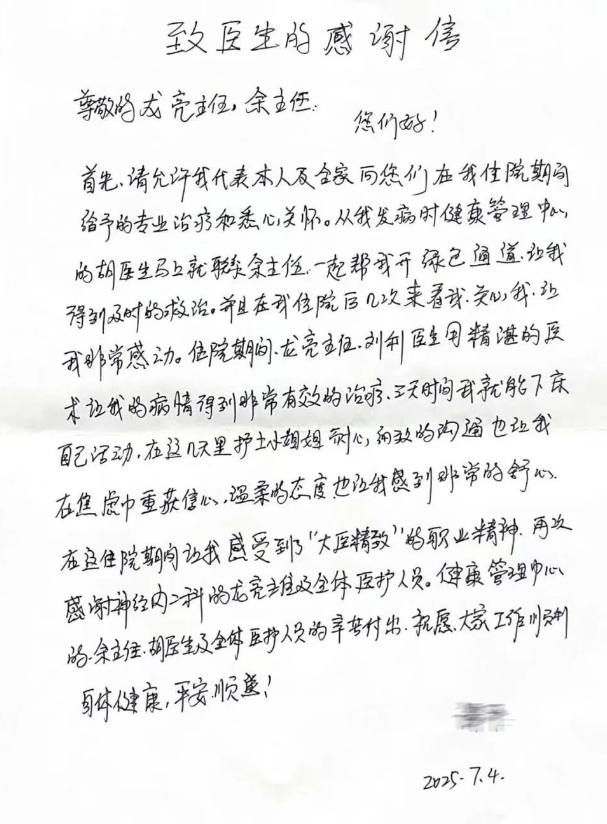 致医生的感谢信
尊敬的龙亮主任，余主任：
您们好！
首先，请允许我代表本人及全家向您们在我住院期间
给予的专业治疗和悉心关怀。从我发病时健康管理中心
的胡医生马上就联系余主任，一起帮我开绿色通道，让我
得到及时的救治。并且在我住院后几次来看我，关心我，让
我非常感动。住院期间，龙亮主任、刘利医生用精湛的医
术让我的病情得到非常有效的治疗，三天时间我就能下床
自己活动，在这几天里护士小姐姐耐心，细致的沟通也让我
在焦虑中重获信心，温柔的态度也让我感到非常的舒心。
在这住院期间让我感受到了“大医精致”的职业精神，再次
感谢神经内二科的龙亮主任及全体医护人员。健康管理中心
的，余主任，胡医生及全体医护人员的辛苦付出，祝愿，大家工作顺利
身体健康，平安顺意！
2025.7.4.